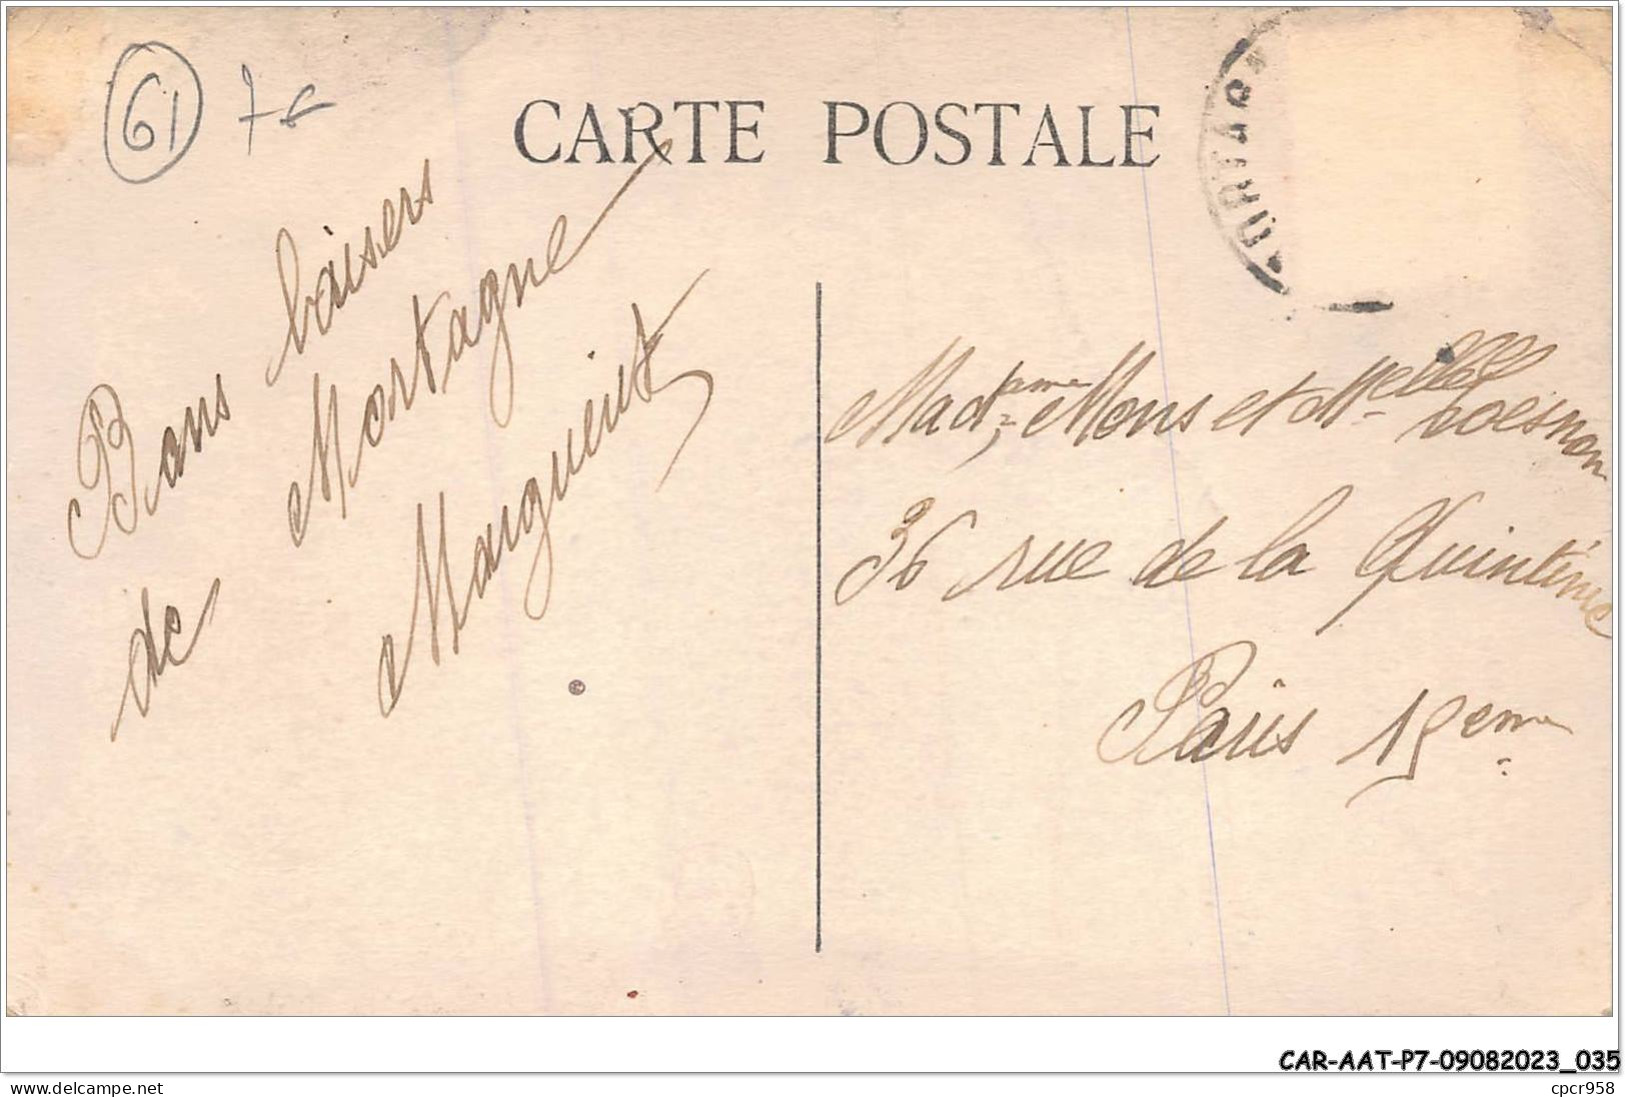 61 7€
CARTE POSTALE
Bons baisers
de Mortagne
Marguerite
Madame Mons et Melle
36 rue de la Quintinie
Paris 15eme
CAR-AAT-P7-09082023_035
www.delcampe.net
cpcr958